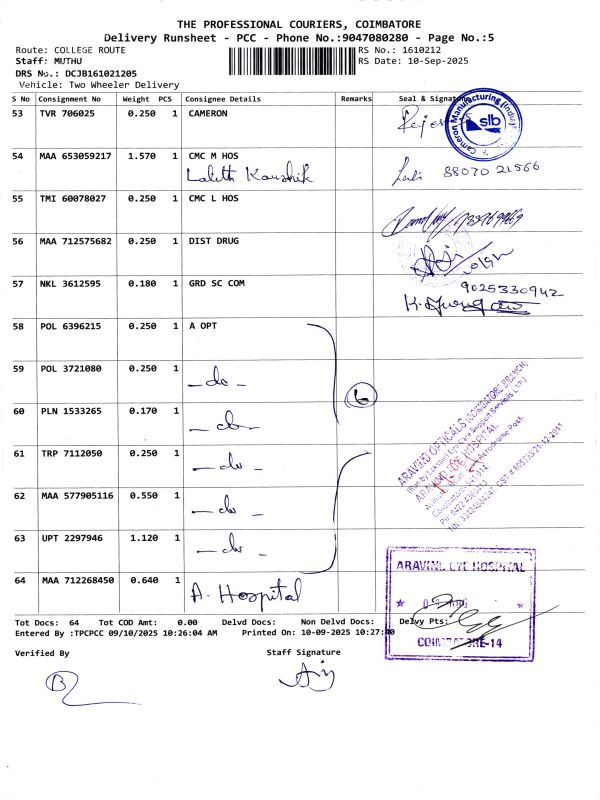 THE PROFESSIONAL COURIERS, COIMBATORE
Delivery Runsheet - PCC - Phone No.:9047080280 - Page No.:5
Route: COLLEGE ROUTE RS No.: 1610212
Staff: MUTHU RS Date: 10-Sep-2025
DRS No.: DCJB161021205
Vehicle: Two Wheeler Delivery
S No Consignment No Weight PCS Consignee Details Remarks Seal & Signature
53 TVR 706025 0.250 1 CAMERON
Cameron Manufacturing (India)
slb
54 MAA 653059217 1.570 1 CMC M HOS
Lalith Kaushik 88070 21566
55 TMI 60078027 0.250 1 CMC L HOS
56 MAA 712575682 0.250 1 DIST DRUG
57 NKL 3612595 0.180 1 GRD SC COM
9025330942
58 POL 6396215 0.250 1 A OPT
59 POL 3721080 0.250 1
- do -
6
60 PLN 1533265 0.170 1
- do -
61 TRP 7112050 0.250 1
- do -
ARAVIND OPTICALS (COIMBATORE BRANCH)
ARAVIND EYE HOSPITAL
62 MAA 577905116 0.550 1
- do -
63 UPT 2297946 1.120 1
- do -
64 MAA 712268450 0.640 1
A. Hospital
ARAVIND EYE HOSPITAL
COIMBATORE-14
Tot Docs: 64 Tot COD Amt: 0.00 Delvd Docs: Non Delvd Docs: Delvy Pts:
Entered By :TPCPCC 09/10/2025 10:26:04 AM Printed On: 10-09-2025 10:27:40
Verified By Staff Signature